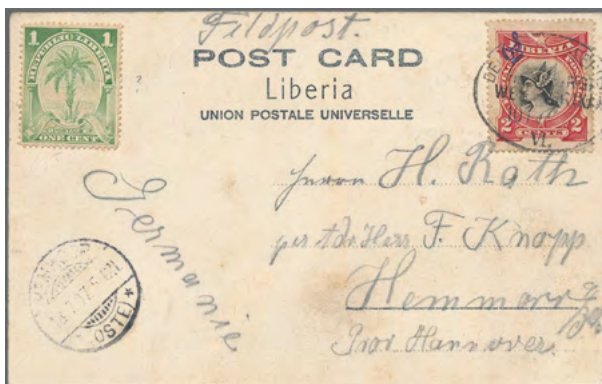 Feldpost.
POST CARD
Liberia
UNION POSTALE UNIVERSELLE
1 1
REPUBLIC LIBERIA
ONE CENT
LIBERIA
2 CENTS 2
VI.
Germanie
Herrn H. Rath
per Adr. Herr F. Knopp
Hemmoor
Prov. Hannover.
OSTE)